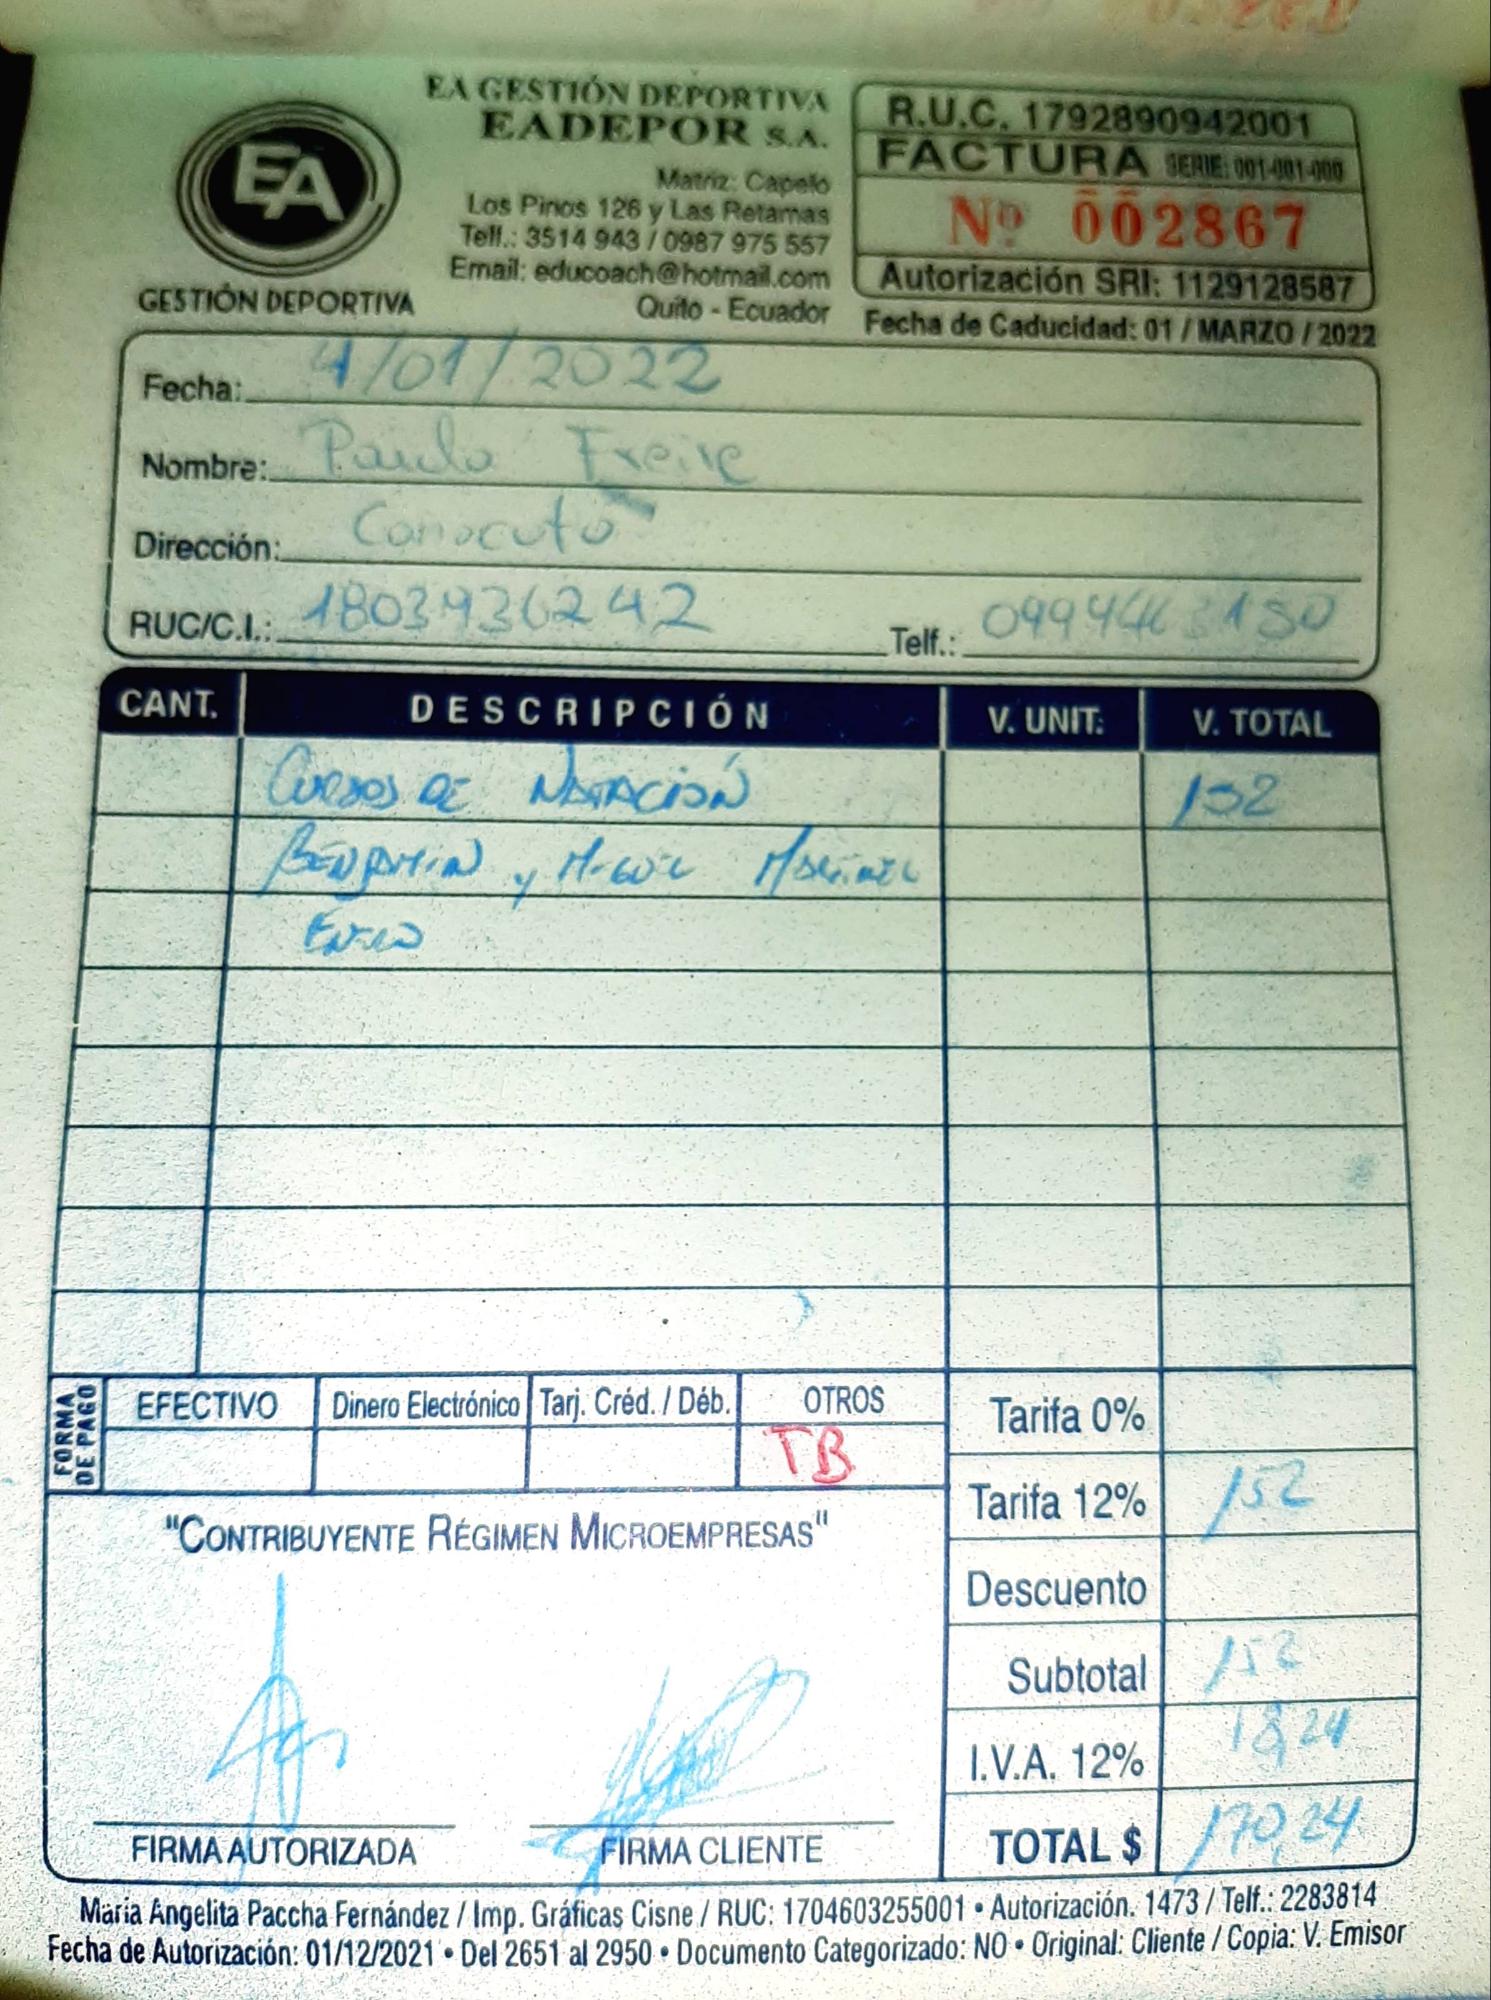 EA GESTIÓN DEPORTIVA
EADEPOR S.A.
EA
GESTIÓN DEPORTIVA
Matriz: Capelo
Los Pinos 126 y Las Retamas
Telf.: 3514 943 / 0987 975 557
Email: educoach@hotmail.com
Quito - Ecuador
R.U.C. 1792890942001
FACTURA SERIE: 001-001-000
Nº 002867
Autorización SRI: 1129128587
Fecha de Caducidad: 01 / MARZO / 2022
Fecha: 4/01/2022
Nombre: Freire
Dirección:
RUC/C.I.: Telf.:
CANT. DESCRIPCIÓN V. UNIT. V. TOTAL
CURSOS DE NATACIÓN 152
BENJAMIN y MIGUEL
FORMA DE PAGO
EFECTIVO Dinero Electrónico Tarj. Créd. / Déb. OTROS
TB
Tarifa 0%
Tarifa 12% 152
Descuento
Subtotal 152
I.V.A. 12% 18,24
TOTAL $ 170,24
"CONTRIBUYENTE RÉGIMEN MICROEMPRESAS"
FIRMA AUTORIZADA FIRMA CLIENTE
María Angelita Paccha Fernández / Imp. Gráficas Cisne / RUC: 1704603255001 • Autorización. 1473 / Telf.: 2283814
Fecha de Autorización: 01/12/2021 • Del 2651 al 2950 • Documento Categorizado: NO • Original: Cliente / Copia: V. Emisor